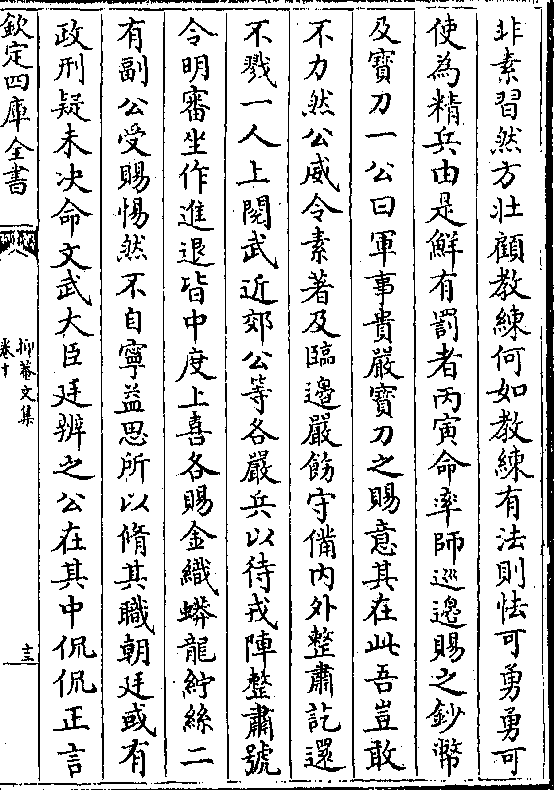 非素習然方壯顧教練何如教練有法則怯可勇勇可
使為精兵由是鮮有罰者丙寅命率師巡邊賜之鈔幣
及寶刀一公曰軍事貴嚴寶刀之賜意其在此吾豈敢
不力然公威令素著及臨邊嚴飭守備内外整肅訖還
不戮一人上閱武近郊公等各嚴兵以待戎陣整肅號
令明審坐作進退皆中度上喜各賜金織蟒龍紵絲二
有副公受賜惕然不自寧益思所以脩其職朝廷或有
政刑疑未決命文武大臣廷辨之公在其中侃侃正言
欽定四庫全書
抑菴文集
卷十
十三